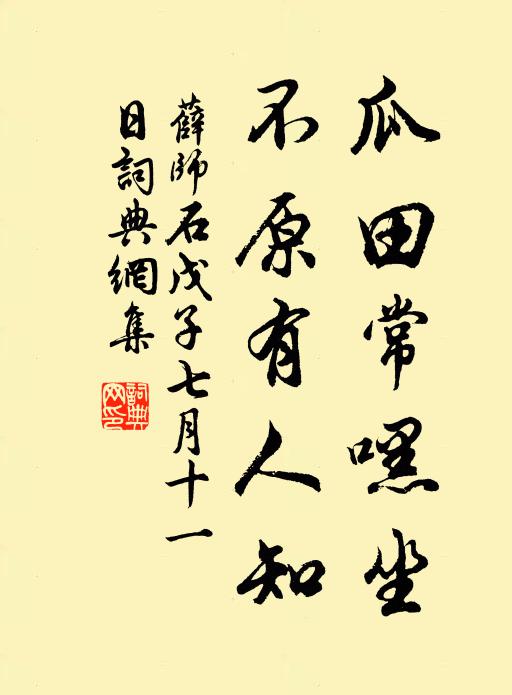 瓜田常嘿坐
不原有人知
薛師石戊子七月十一
日詞典網集
詞典网印